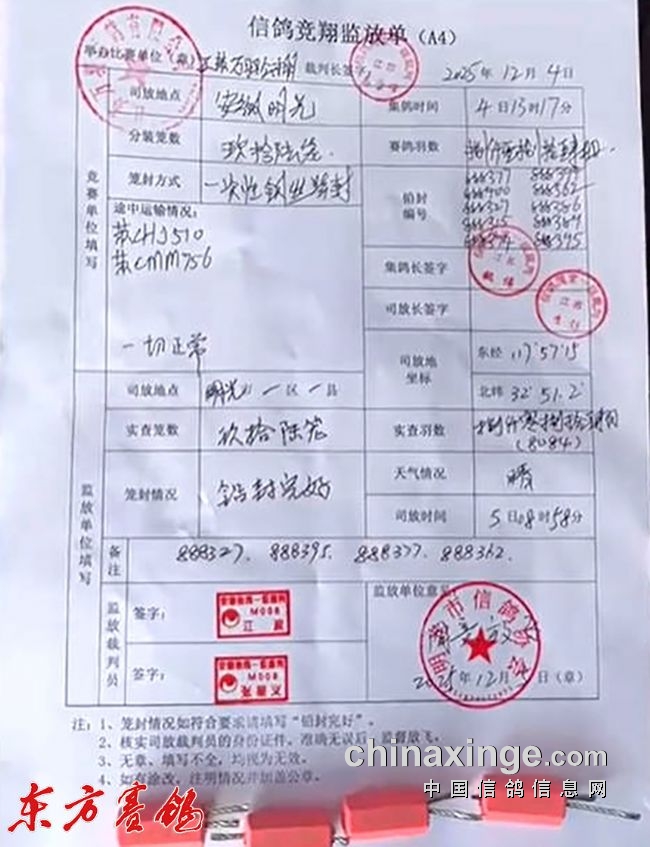 信鸽竞翔监放单（A4）
举办比赛单位（章） 裁判长签字 2025年12月4日
竞赛单位填写
司放地点 安徽明光 集鸽时间 4日13时17分
分装笼数 玖拾陆笼 赛鸽羽数
笼封方式 一次性钢丝铅封 铅封编号
888377 888395
888400 888362
888327 888386
途中运输情况：
苏CHJ510
苏CMM756
一切正常
集鸽长签字
司放长签字
司放地坐标 东经 117°57′15
北纬 32°51.2′
监放单位填写
司放地点 明光 区 县
实查笼数 玖拾陆笼 实查羽数 捌仟零捌拾肆羽
(8084)
笼封情况 铅封完好 天气情况 晴
司放时间 5日08时58分
备注 888327、888395、888377、888362、
监放裁判员 签字： M008
签字： M008
监放单位意见
同意放飞
2025年12月4日（章）
注：1、笼封情况如符合要求请填写“铅封完好”。
2、核实司放裁判员的身份证件，准确无误后，监督放飞。
3、无章、填写不全，均视为无效。
4、如有涂改，注明情况并加盖公章。
chinaxinge.com
中国信鸽信息网
东方赛鸽